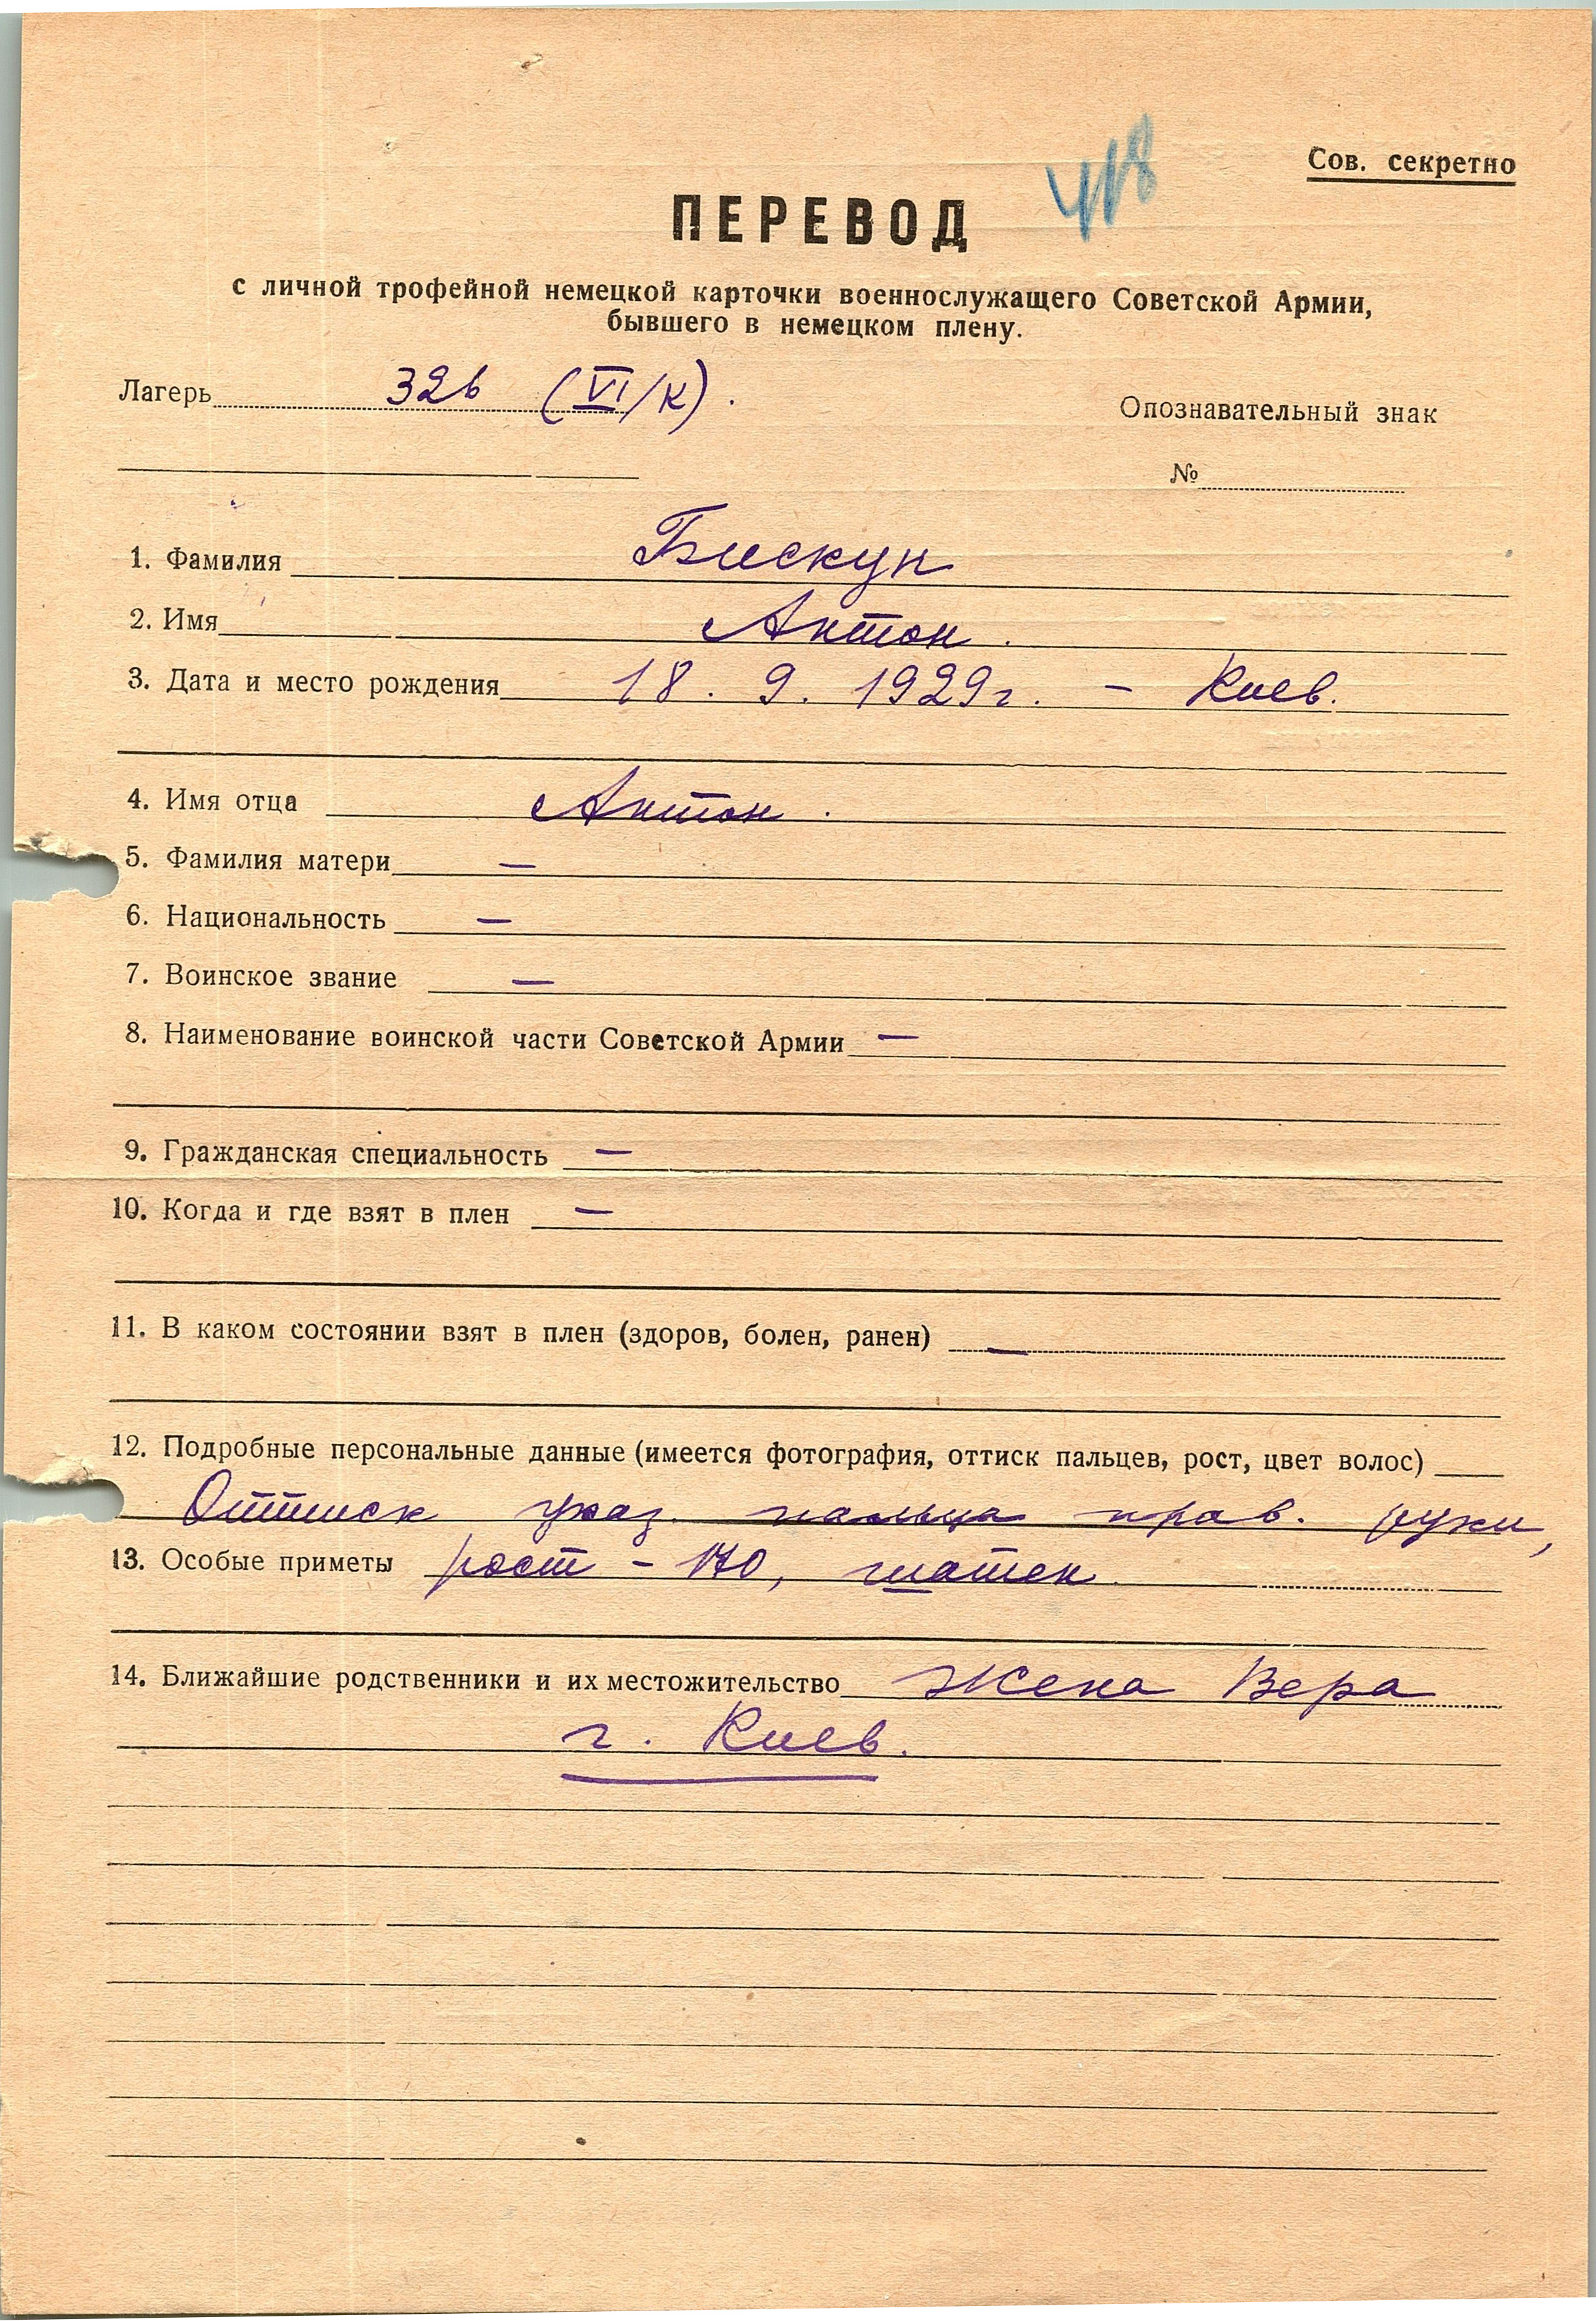 418
Сов. секретно
ПЕРЕВОД
с личной трофейной немецкой карточки военнослужащего Советской Армии,
бывшего в немецком плену.
Лагерь 326 (VI/К).
Опознавательный знак
№
1. Фамилия Бискуп
2. Имя Антон.
3. Дата и место рождения 18. 9. 1929г. – Киев.
4. Имя отца Антон.
5. Фамилия матери —
6. Национальность —
7. Воинское звание —
8. Наименование воинской части Советской Армии —
9. Гражданская специальность —
10. Когда и где взят в плен —
11. В каком состоянии взят в плен (здоров, болен, ранен) —
12. Подробные персональные данные (имеется фотография, оттиск пальцев, рост, цвет волос)
Оттиск указ. пальца прав. руки,
13. Особые приметы рост – 170, шатен.
14. Ближайшие родственники и их местожительство Жена Вера
г. Киев.